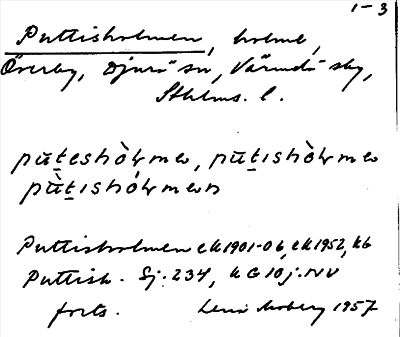 1-3
Puttisholmen, holme,
Överby, Djurö sn, Värmdö sky,
Sthlms. l.
pùt̲eshòɫmeɷ, pùt̲ishòɫmeɷ
pùt̲ishóɫmeɷn
Puttisholmen ek1901-06, ek1952, kb
Puttish. Sj: 234, KG 10j.IVV
forts. Lena Moberg 1957